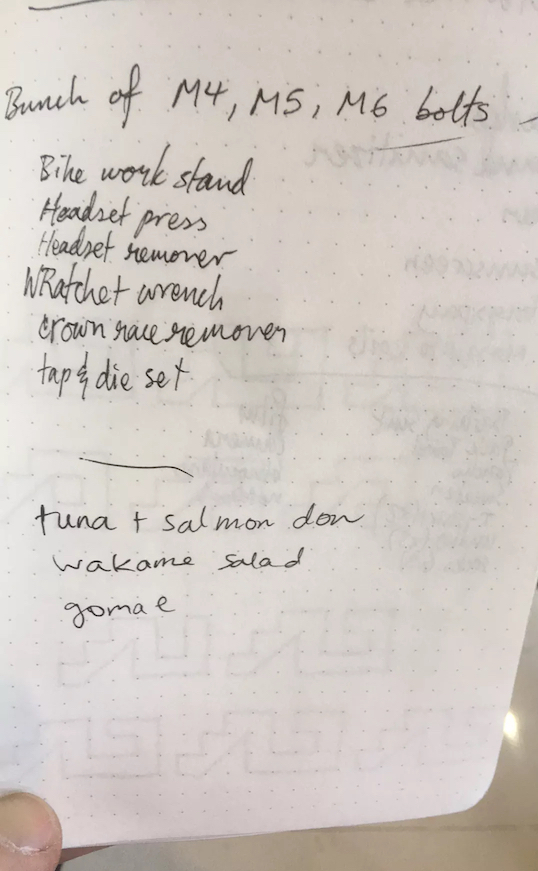 Bunch of M4, M5, M6 bolts
Bike work stand
Headset press
Headset remover
WRatchet wrench
crown race remover
tap & die set
tuna + salmon don
wakame salad
gomae